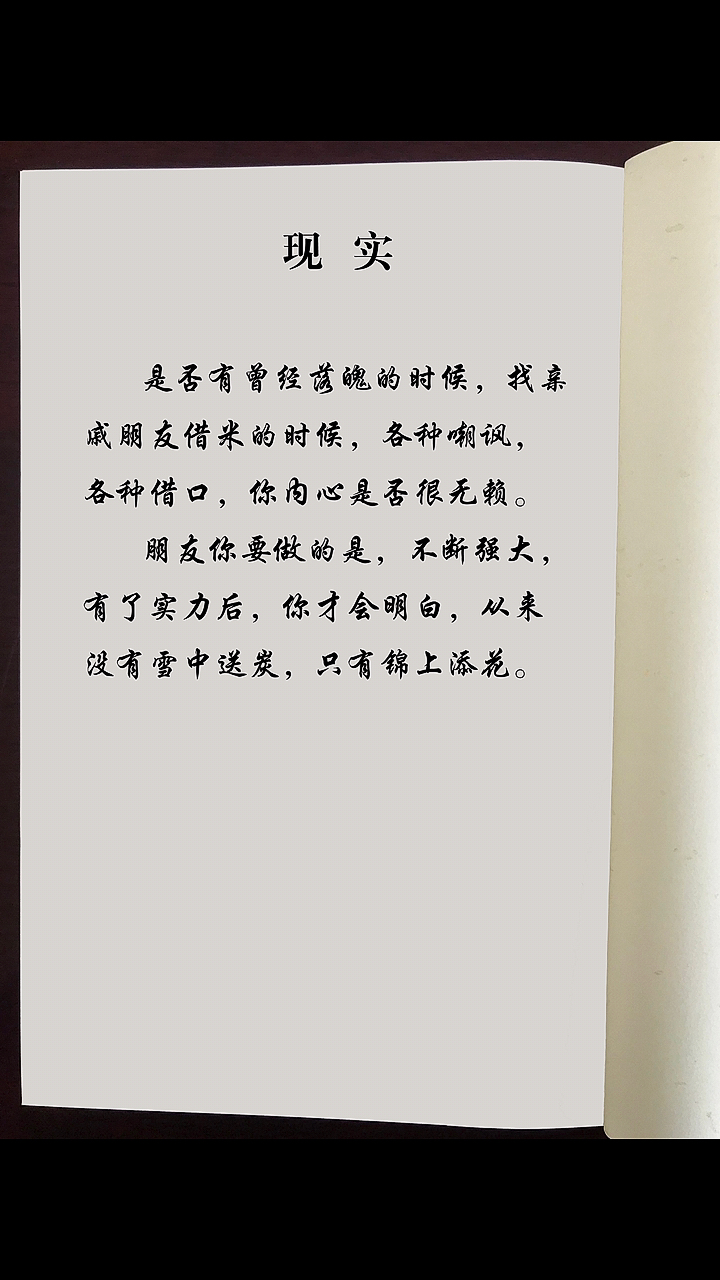 现 实
是否有曾经落魄的时候，找亲
戚朋友借米的时候，各种嘲讽，
各种借口，你内心是否很无赖。
朋友你要做的是，不断强大，
有了实力后，你才会明白，从来
没有雪中送炭，只有锦上添花。